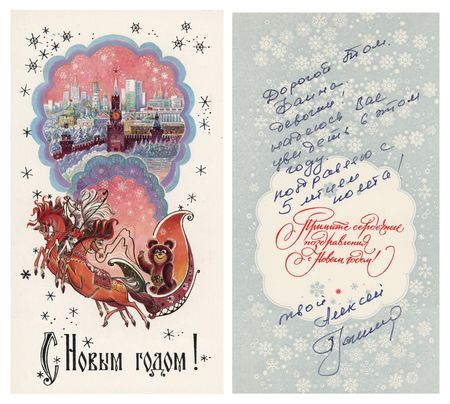 С Новым годом!
Дорогой Том.
Фаина.
девочки!
надеюсь Вас
увидеть в этом
году.
поздравляю с
5 летием
полета!
Примите сердечные
поздравления
с Новым годом!
твой Алексей